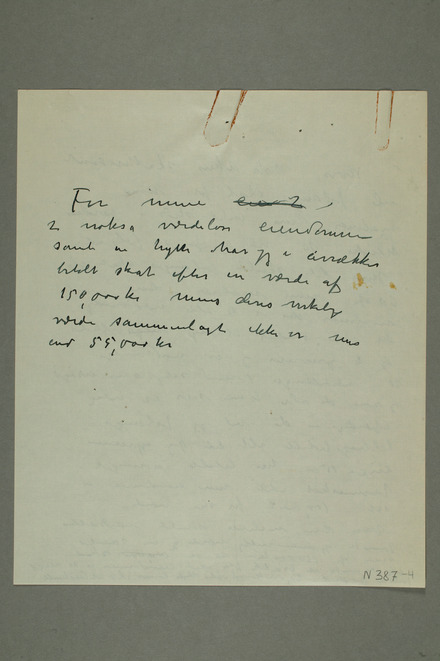 For mine
2 nokså værdeløse eiendommer
samt en hytte har jeg i årrækker
betalt skat efter en værdi af
150,000 kr mens deres virkelig
værdi sammenlagt ikke er mer
end 55,000 kr
N 387-4